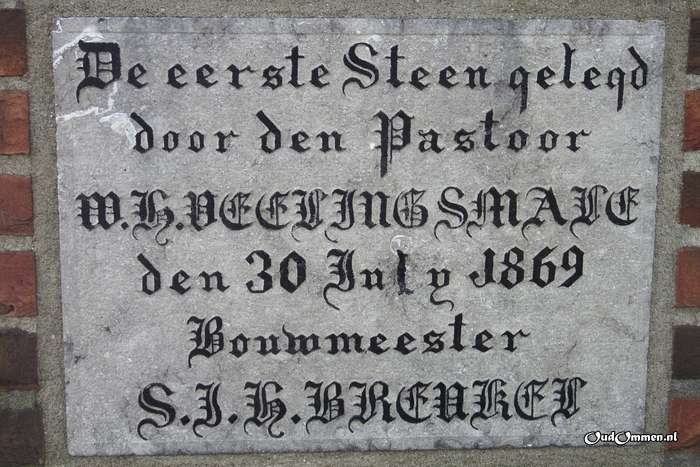 De eerste Steen gelegd
door den Pastoor
W.H.VEELINGSMALE
den 30 July 1869
Bouwmeester
S.J.H.BREUKEL
OudOmmen.nl